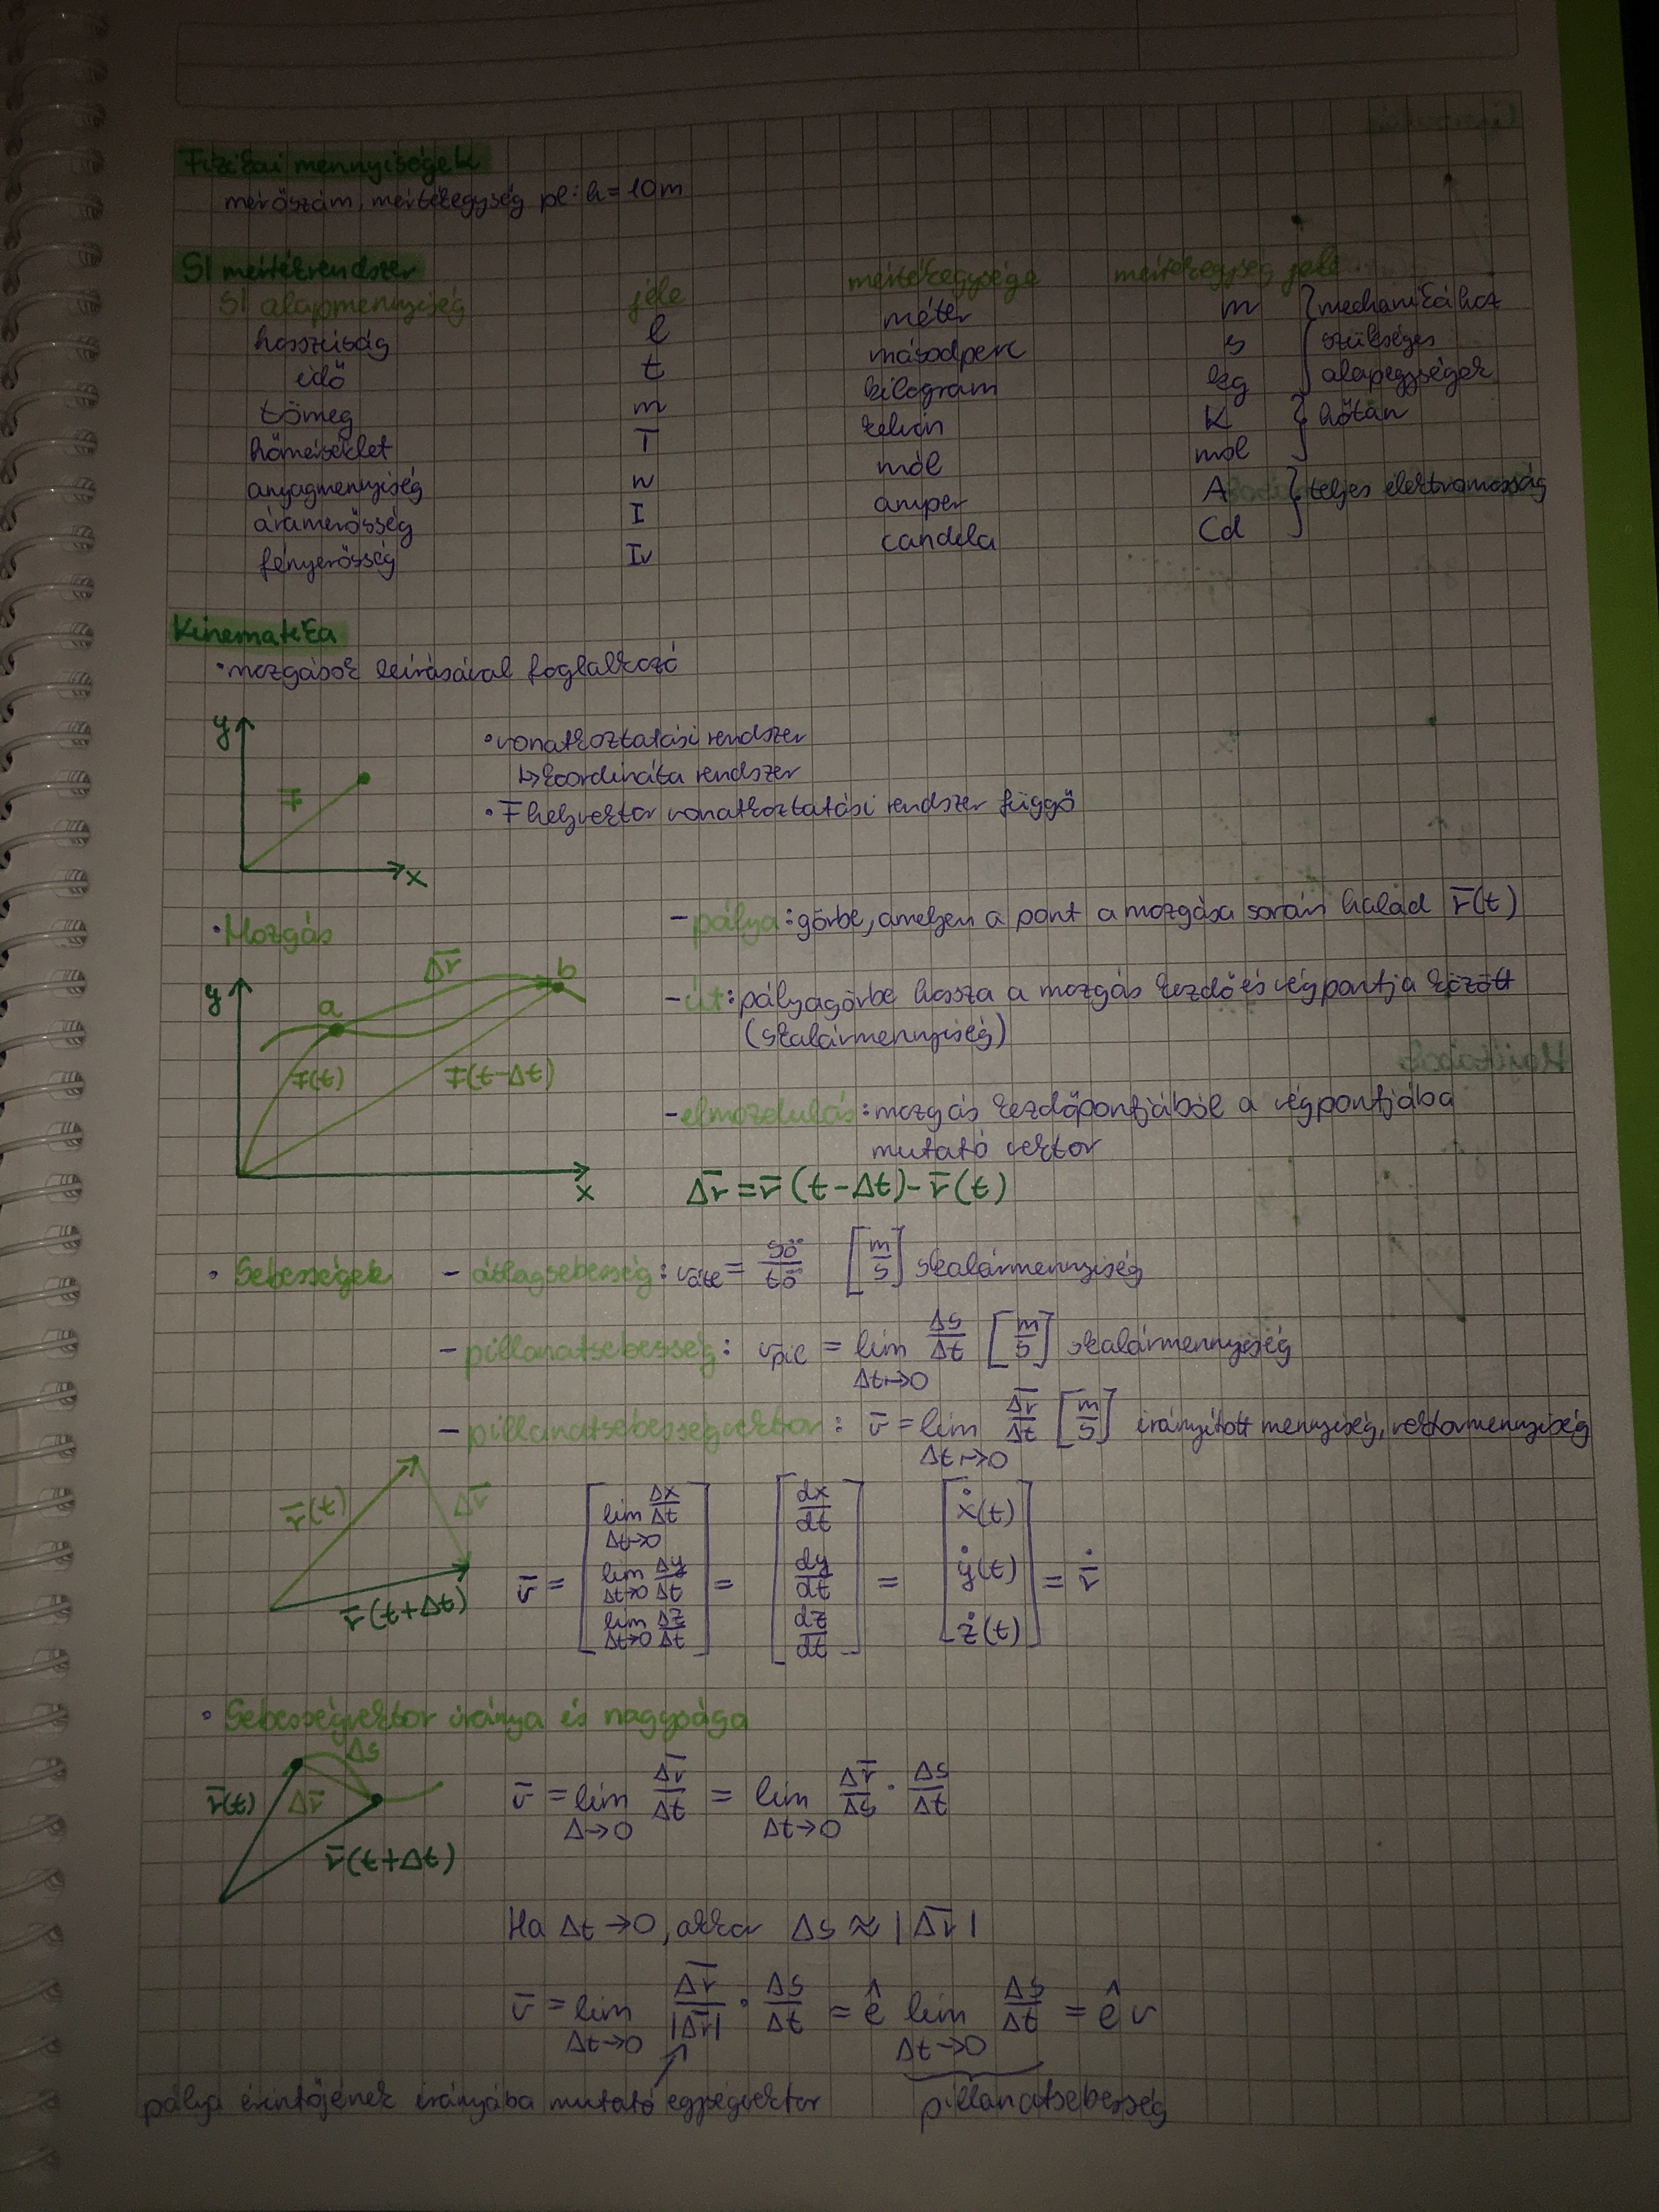 Fizikai mennyiségek
mérőszám, mértékegység pl: h = 10m
SI mértékrendszer
SI alapmennyiség jele mértékegysége mértékegység jele
hosszúság l méter m } mechanikához
idő t másodperc s szükséges
tömeg m kilogram kg alapegységek
hőmérséklet T kelvin K } hőtan
anyagmennyiség n mól mol
áramerősség I amper A } teljes elektromosság
fényerősség Iv candela Cd
Kinematika
• mozgások leírásával foglalkozó
y
r̅
x
• vonatkoztatási rendszer
↳ koordináta rendszer
• r̅ helyvektor vonatkoztatási rendszer függő
• Mozgás
y
a
Δr̅
b
r̅(t)
r̅(t-Δt)
x
- pálya: görbe, amelyen a pont a mozgása során halad r̅(t)
- út: pályagörbe hossza a mozgás kezdő és végpontja között
(skalármennyiség)
- elmozdulás: mozgás kezdőpontjából a végpontjába
mutató vektor
Δr̅ = r̅(t-Δt) - r̅(t)
• Sebességek - átlagsebesség: vátl = sö/tö [m/s] skalármennyiség
- pillanatsebesség: vpil = lim Δt→0 Δs/Δt [m/s] skalármennyiség
- pillanatsebességvektor: v̅ = lim Δt→0 Δr̅/Δt [m/s] irányított mennyiség, vektormennyiség
r̅(t)
Δr̅
r̅(t+Δt)
v̅ = [lim Δt→0 Δx/Δt, lim Δt→0 Δy/Δt, lim Δt→0 Δz/Δt] = [dx/dt, dy/dt, dz/dt] = [ẋ(t), ẏ(t), ż(t)] = ṙ̅
• Sebességvektor iránya és nagysága
Δs
r̅(t)
Δr̅
r̅(t+Δt)
v̅ = lim Δ→0 Δr̅/Δt = lim Δt→0 Δr̅/Δs · Δs/Δt
Ha Δt→0, akkor Δs ≈ |Δr̅|
v̅ = lim Δt→0 Δr̅/|Δr̅| · Δs/Δt = ê lim Δt→0 Δs/Δt = ê v
pálya érintőjének irányába mutató egységvektor
pillanatsebesség